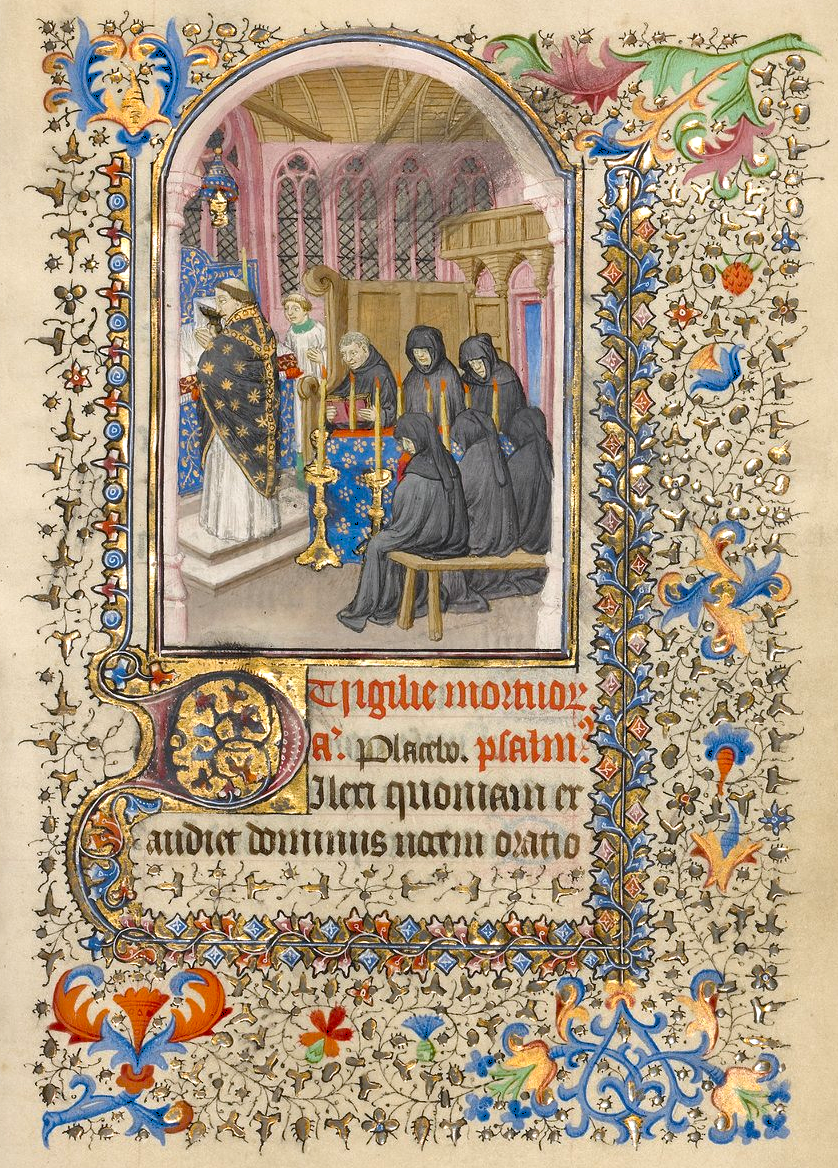 Vigilie mortuor.
a. Placebo. psalm.
Dilexi quoniam ex
audiet dominus vocem oratio